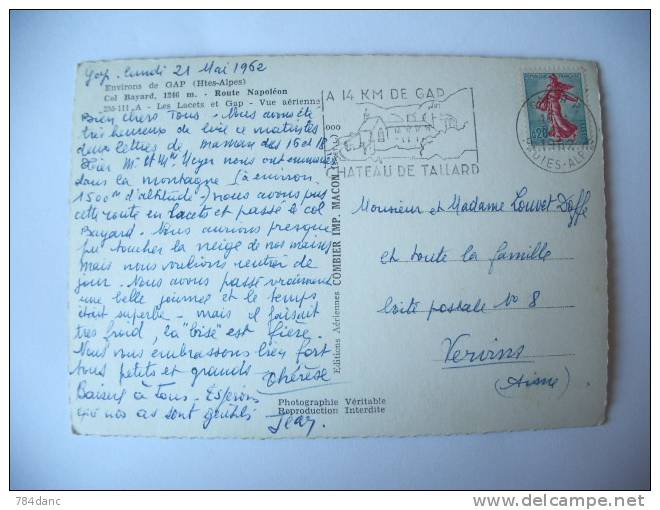 Gap. Lundi 21 Mai 1962
Environs de GAP (Htes-Alpes)
Col Bayard, 1246 m. - Route Napoléon
A - Les Lacets et Gap - Vue aérienne
Bien chers Tous - Nous avons été
très heureux de lire ce matin les
deux lettres de maman des 16 et 18
Hier Mr et Mme Meyer nous ont emmenés
dans la montagne (à environ
1500m d'altitude) nous avons pris
cette route en lacets et passé le col
Bayard. Nous aurions presque
pu toucher la neige de nos mains
mais nous voulions rentrer de
jour. Nous avons passé vraiment
une belle journée et le temps
était superbe - mais il faisait
très froid, la "bise" est fière.
Nous vous embrassons bien fort
tous petits et grands Thérèse
Baisers à Tous - Espérons
que nos as sont gentils
Jean
Editions Aériennes COMBIER IMP. MACON
Photographie Véritable
Reproduction Interdite
A 14 KM DE GAP
CHATEAU DE TALLARD
0,20
HAUTES-ALPES
Monsieur et Madame Louvet
et toute la famille
boite postale No 8
Vervins
(Aisne)
784danc
delcampe.net